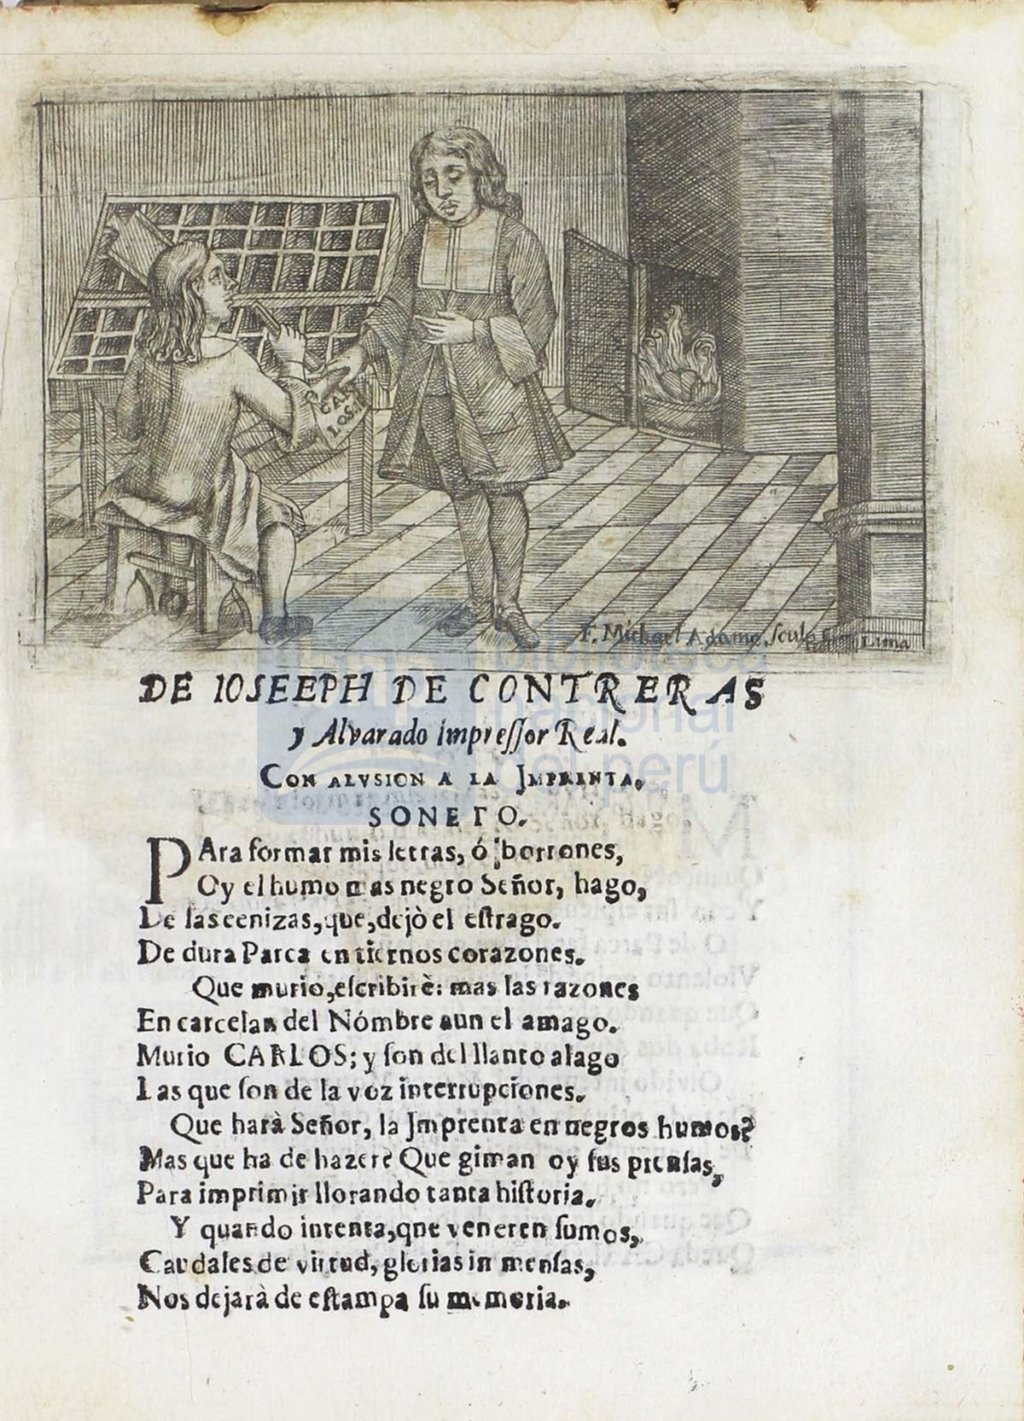 CAR
LOS. II
F. Michael Adame, sculp Lima
DE IOSEEPH DE CONTRERAS
y Alvarado impreſſor Real.
CON ALVSION A LA JMPRINTA.
SONETO.
PAra formar mis letras, ó borrones,
Oy el humo mas negro Señor, hago,
De las cenizas, que, dejò el eſtrago.
De dura Parca en tiernos corazones.
Que murio, eſcribirè: mas las razones
En carcelan del Nómbre aun el amago.
Murio CARLOS; y ſon del llanto alago
Las que ſon de la voz interrupciones.
Que harà Señor, la Jmprenta en negros humos?
Mas que ha de hazer? Que giman oy ſus prenſas,
Para imprimir llorando tanta hiſtoria.
Y quando intenta, qne veneren ſumos,
Caudales de virtud, glorias in menſas,
Nos dejarà de eſtampa ſu memoria.
biblioteca
nacional
del perú